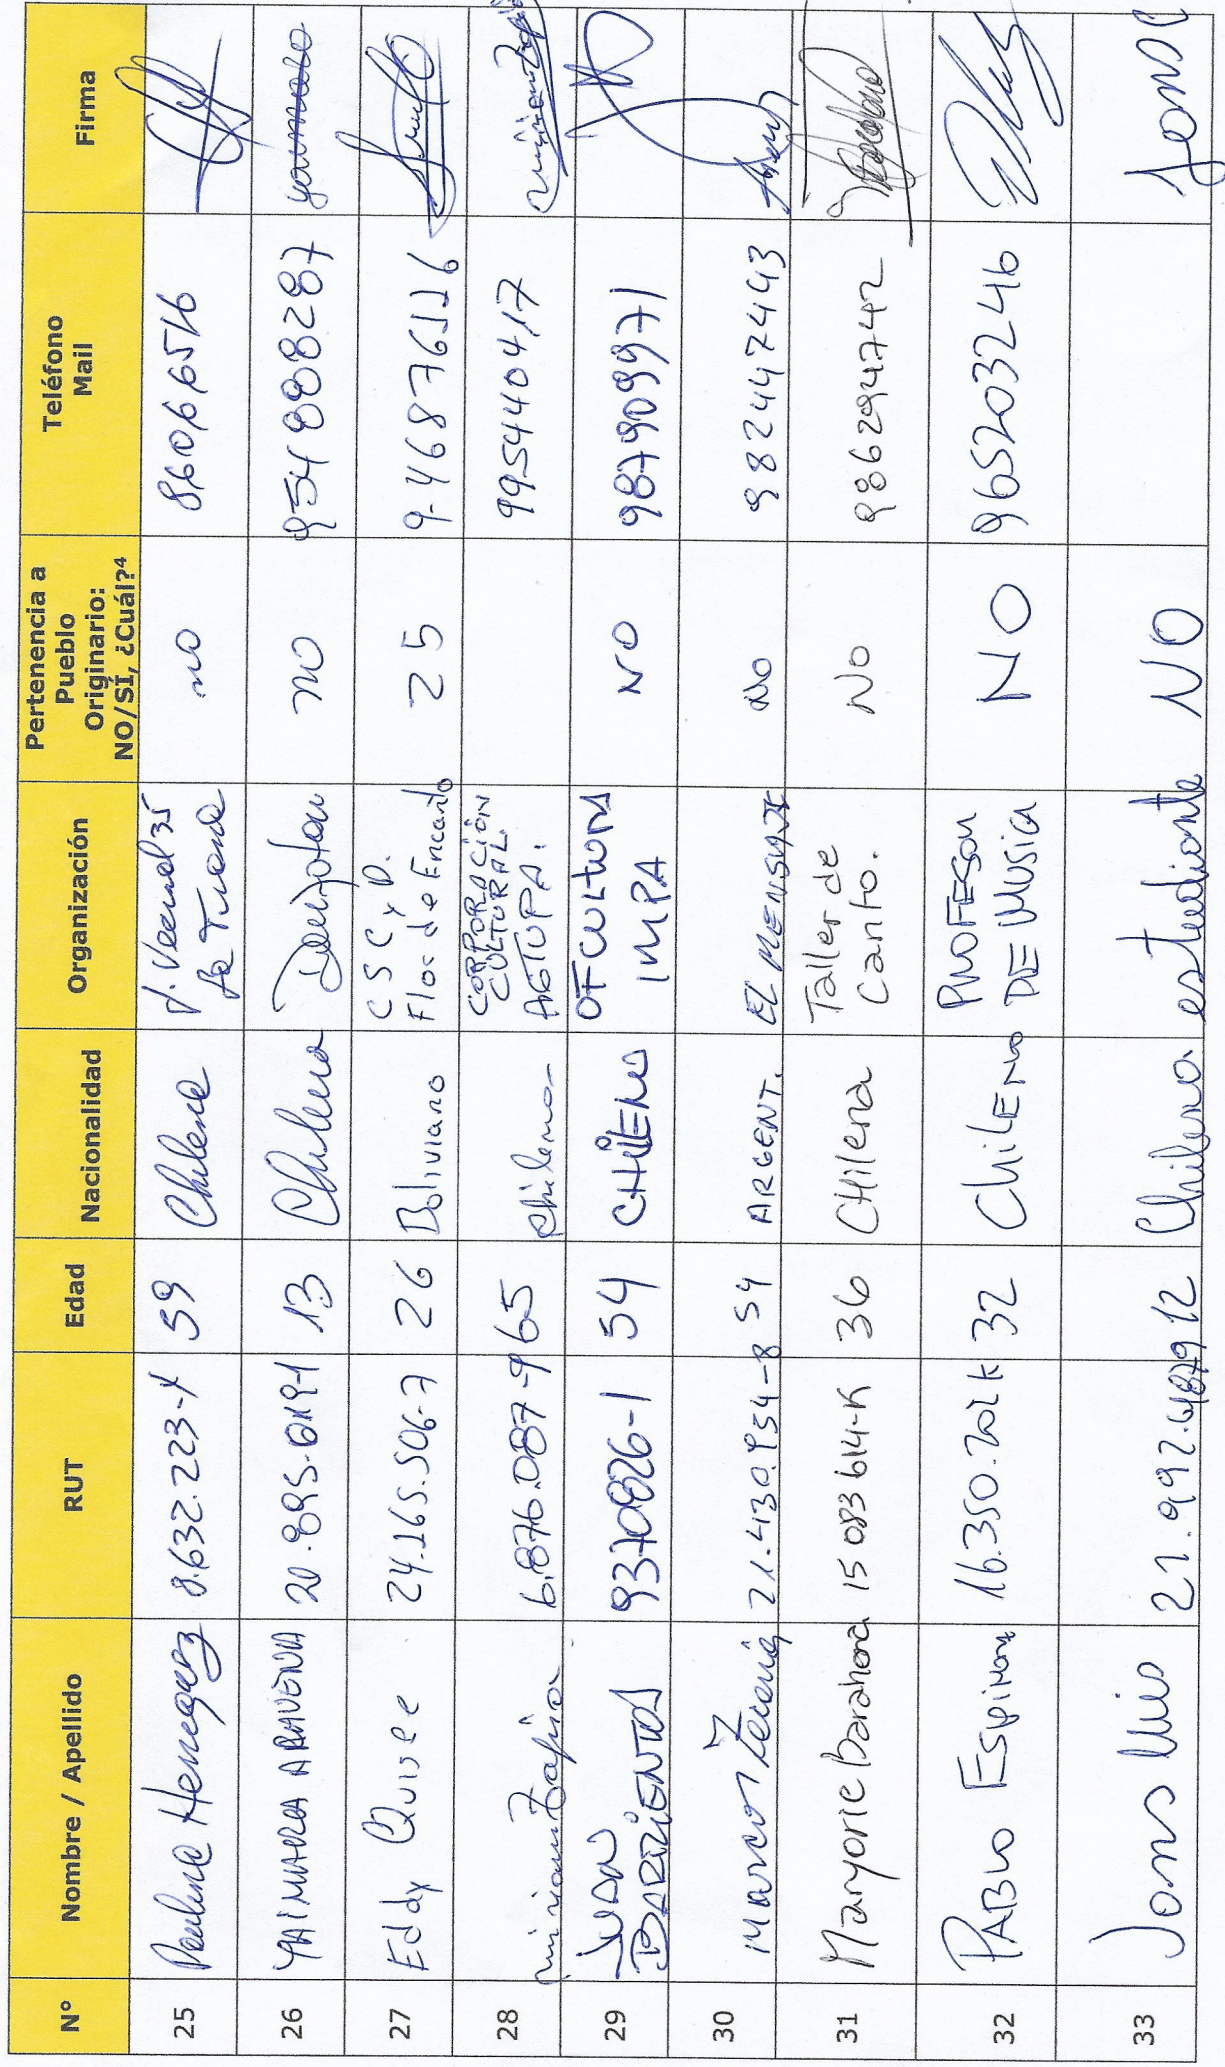 N° Nombre / Apellido RUT Edad Nacionalidad Organización Pertenencia a Pueblo Originario: NO/SÍ, ¿Cuál?⁴ Teléfono Mail Firma
25 Paulina Henriquez 8.632.223-4 59 Chilena J. Vecinal 35 La Tirana no 86066516
26 YAIMARA ARAVENA 20.895. 13 Chilena no 954888287
27 Eddy Quispe 24.165.506-7 26 Boliviano C S C y D. Flor de Encanto 25 9-46876116
28 miriam Zapior 6.876.087-9 65 chilena CORPORACIÓN CULTURAL AGTUPA. 995440417
29 JUAN BARRIENTOS 9370826-1 54 CHILENO OF CULTURA IMPA NO 987909971
30 Marcos 21.430.954-8 54 ARGENT. EL MENSAJE NO 982447443
31 Maryorie Barahona 15083614-K 36 CHilena Taller de Canto. No 986294742
32 PABLO Espinoza 16.350.202 K 32 ChilENO PROFESOR DE MUSICA NO 965203246
33 Jons Luis 21.992.4879 12 Chilena estudiante NO